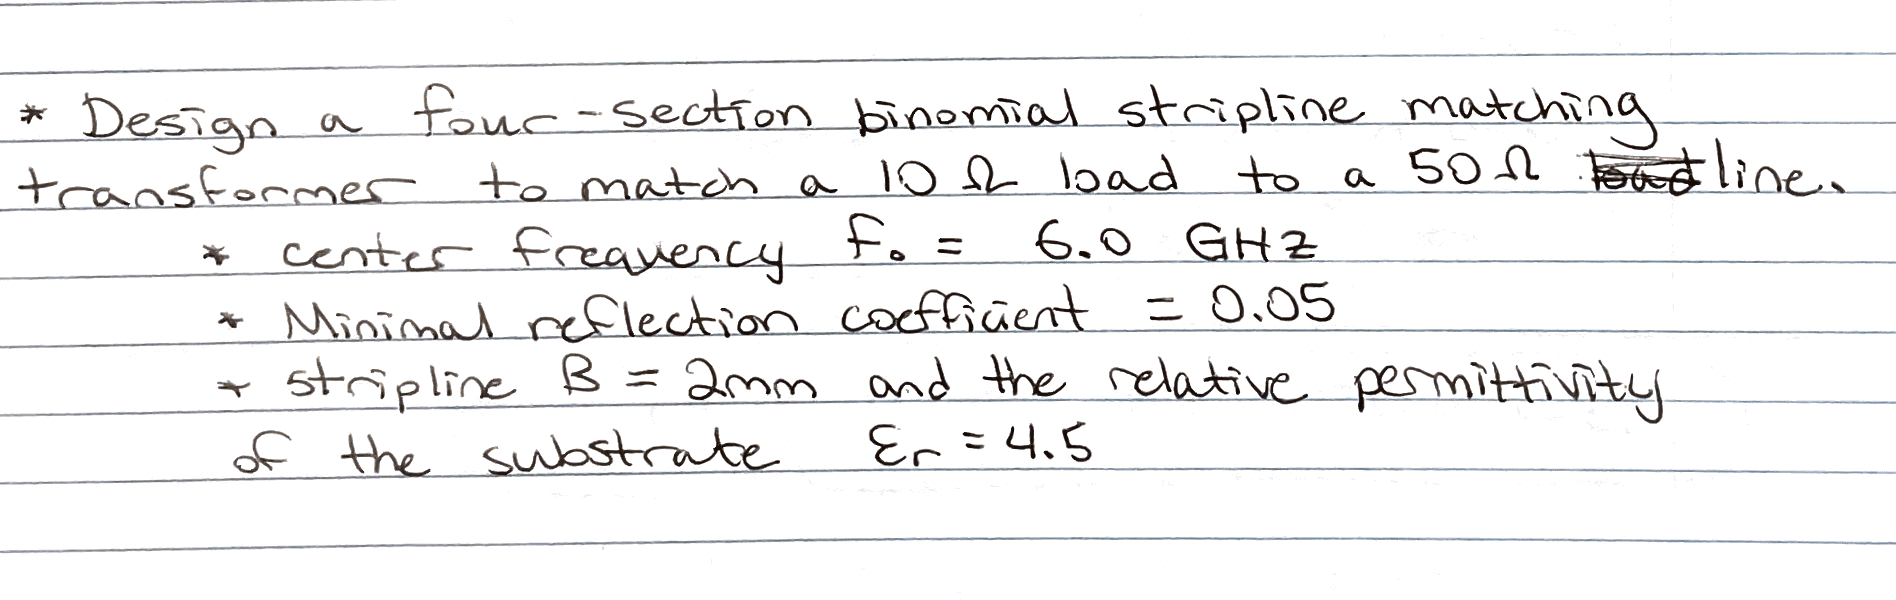 * Design a four-section binomial stripline matching
transformer to match a 10 Ω load to a 50 Ω line.
* center frequency f₀ = 6.0 GHz
* Minimal reflection coefficient = 0.05
* stripline B = 2mm and the relative permittivity
of the substrate εr = 4.5